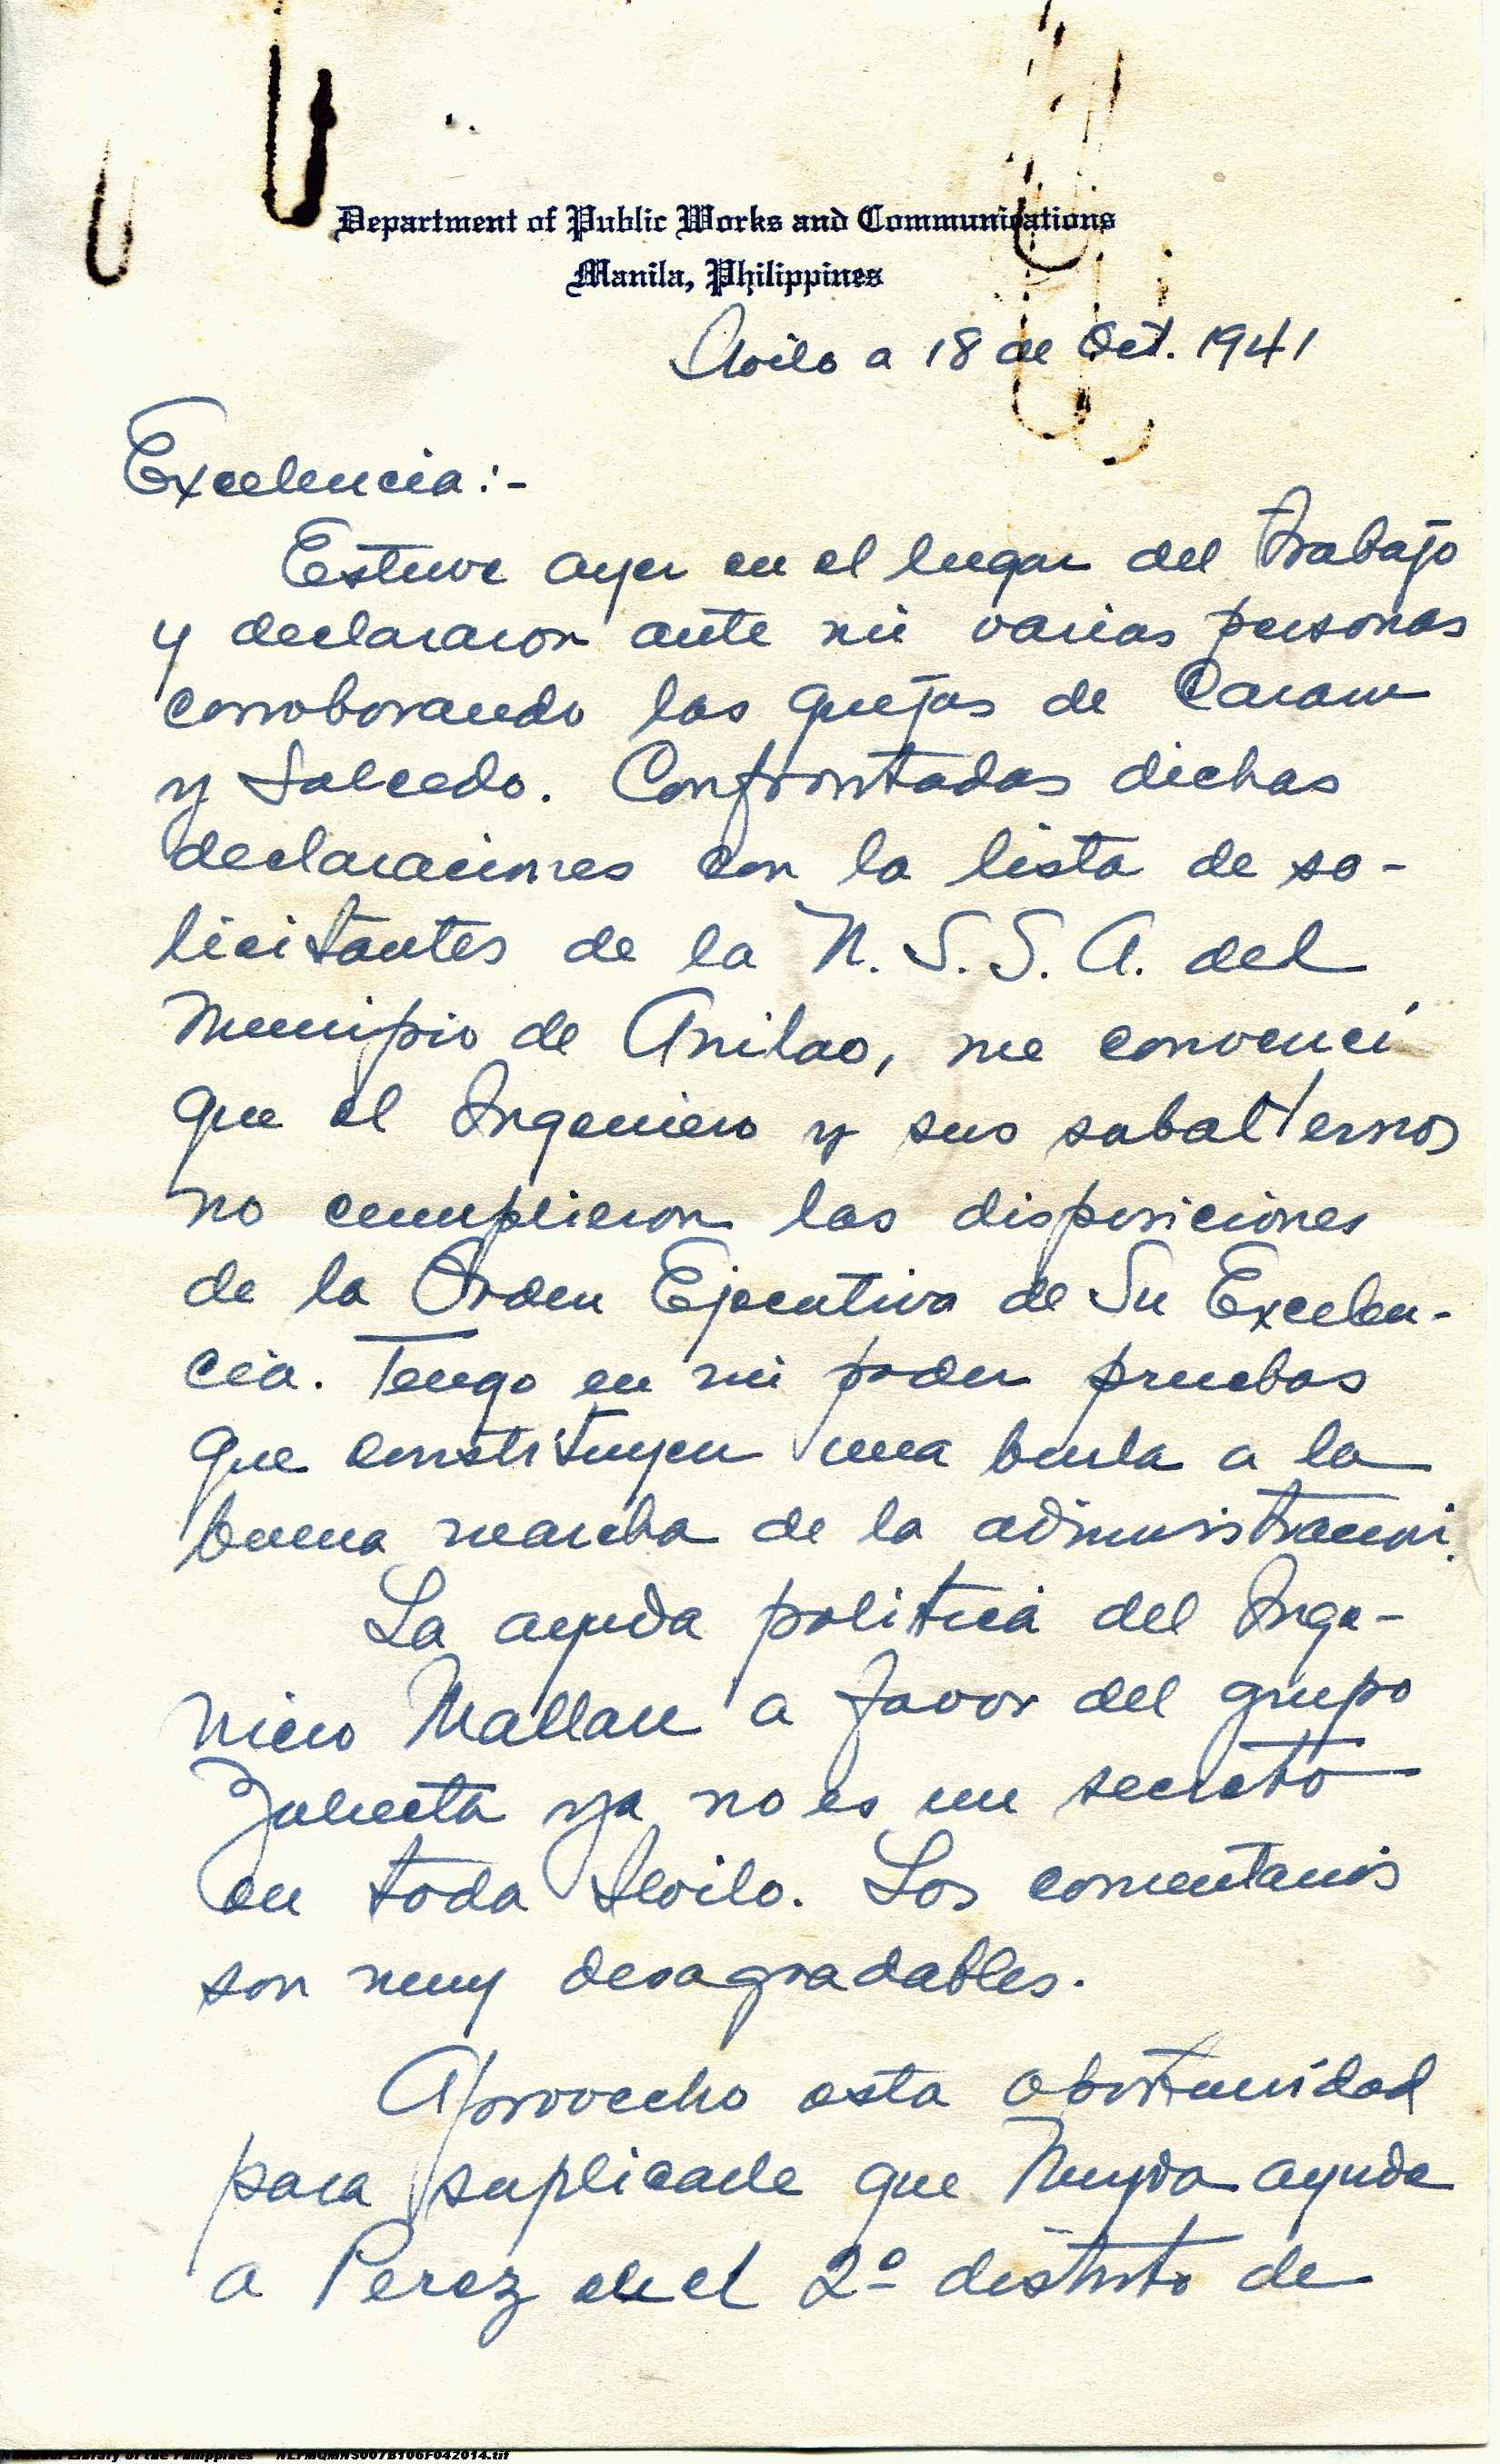 Department of Public Works and Communications
Manila, Philippines
Iloilo a 18 de Oct. 1941
Excelencia:-
Estuve ayer en el lugar del trabajo
y declararon ante mi varias personas
corroborando las quejas de Caram
y Salcedo. Confrontadas dichas
declaraciones con la lista de so-
licitantes de la N. S. S. A. del
Municipio de Anilao, me convencí
que el Ingeniero y sus subalternos
no cumplieron las disposiciones
de la Orden Ejecutiva de Su Excelen-
cia. Tengo en mi poder pruebas
que constituyen una burla a la
buena marcha de la administracion.
La ayuda politica del Inge-
niero Mallari a favor del grupo
Zulueta ya no es un secreto
en toda Iloilo. Los comentarios
son muy desagradables.
Aprovecho esta oportunidad
para suplicarle que ayuda
a Perez en el 2º distrito de
National Library of the Philippines NLPMQMNS007B106F042014.tif